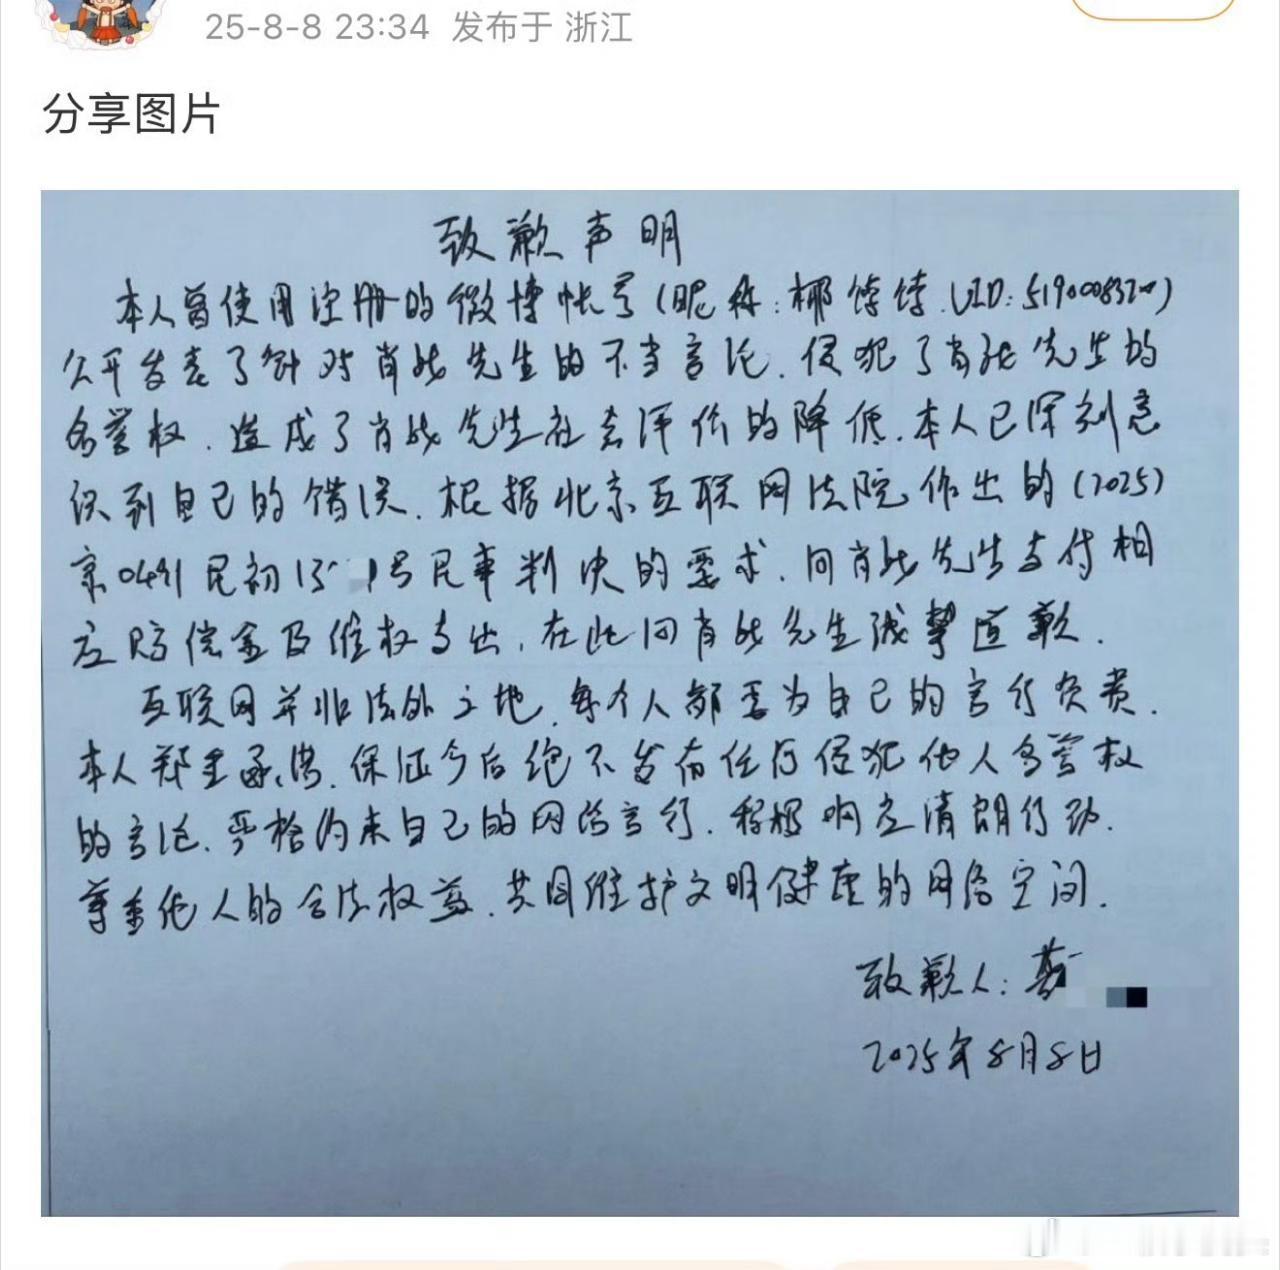 25-8-8 23:34 发布于 浙江
分享图片
致歉声明
本人曾使用注册的微博帐号(昵称:椰饽饽.UID:5190008320)
公开发表了针对肖战先生的不当言论.侵犯了肖战先生的
名誉权.造成了肖战先生社会评价的降低.本人已深刻意
识到自己的错误.根据北京互联网法院作出的(2025)
京0491民初13 1号民事判决的要求.向肖战先生支付相
应赔偿金及维权支出,在此向肖战先生诚挚道歉.
互联网并非法外之地.每个人都要为自己的言行负责.
本人郑重承诺.保证今后绝不发布任何侵犯他人名誉权
的言论.严格约束自己的网络言行.积极响应清朗行动.
尊重他人的合法权益.共同维护文明健康的网络空间.
致歉人:
2025年8月8日